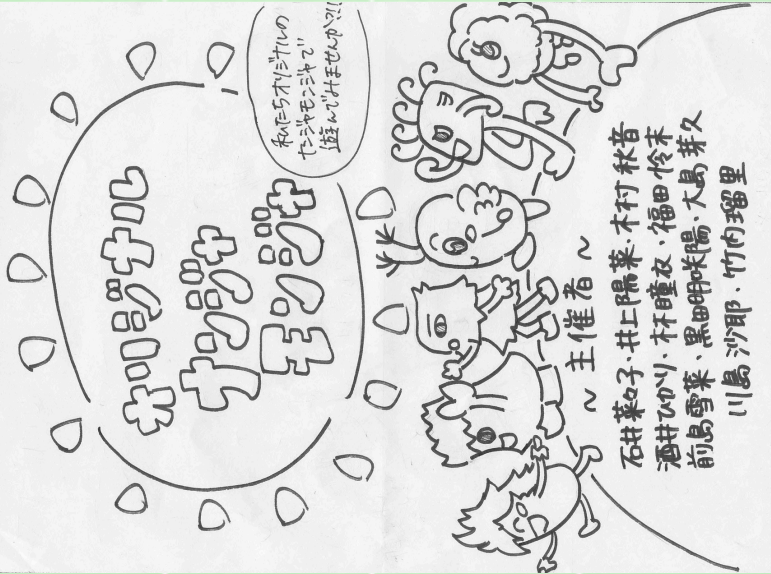 オリジナル
ナンジャ
モンジャ
私たちオリジナルの
ナンジャモンジャで
遊んでみませんか?!!
～主催者～
石井菜々子・井上陽菜・木村秋音
酒井ひかり・林瞳衣・福田怜未
前島雪菜・黒田明咲陽・大島芽久
川島沙耶・竹内瑠里